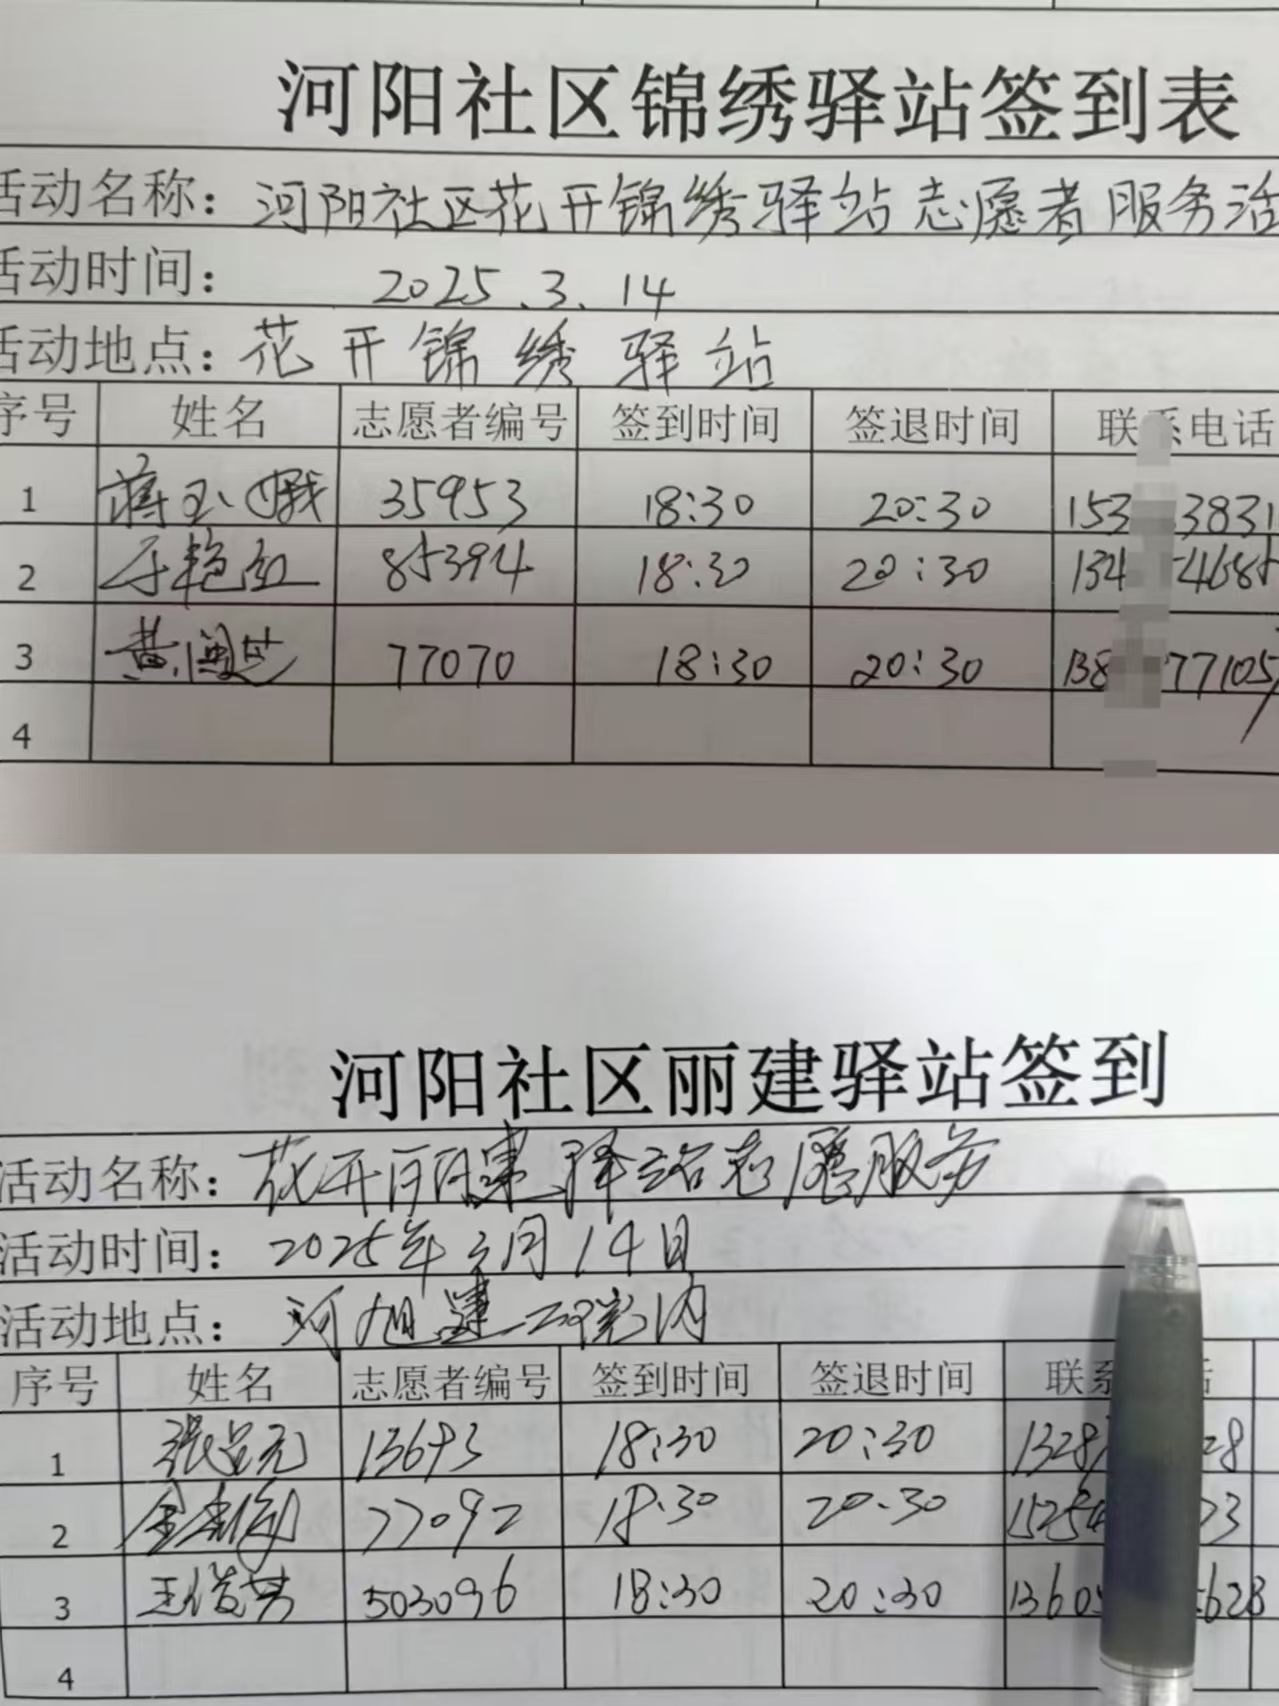 河阳社区锦绣驿站签到表
活动名称：河阳社区花开锦绣驿站志愿者服务活
活动时间： 2025.3.14
活动地点：花开锦绣驿站
序号 姓名 志愿者编号 签到时间 签退时间 联系电话
1 蒋玉娥 35953 18:30 20:30 153 3831
2 于艳红 85394 18:30 20:30 134 468
3 黄闽芝 77070 18:30 20:30 138 77105
4
河阳社区丽建驿站签到
活动名称：花开丽建驿站志愿服务
活动时间：2025年3月14日
活动地点：河旭建 院内
序号 姓名 志愿者编号 签到时间 签退时间 联系
1 张 元 13693 18:30 20:30 1328 28
2 77092 18:30 20:30 15254 23
3 王俊芳 503096 18:30 20:30 1360 628
4